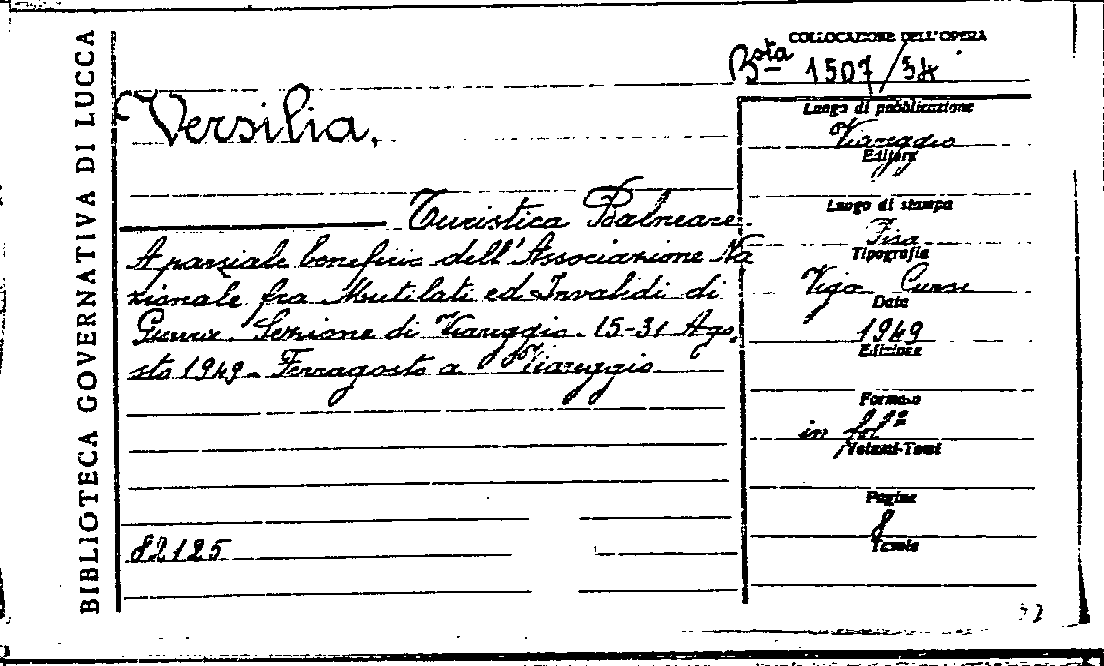 BIBLIOTECA GOVERNATIVA DI LUCCA
COLLOCAZIONE DELL'OPERA
Bsta 1507/54
Versilia.
Turistica Balneare.
A parziale beneficio dell'Associazione Na
zionale fra Mutilati ed Invalidi di
Guerra. Sezione di Viareggio. 15-31 Ago
sto 1949. Ferragosto a Viareggio
82125
Luogo di pubblicazione
Viareggio
Editore
Luogo di stampa
Pisa
Tipografia
Vigo Cursi
Data
1949
Edizione
Formato
in fol°
Volumi-Tomi
Pagine
8
Tavole